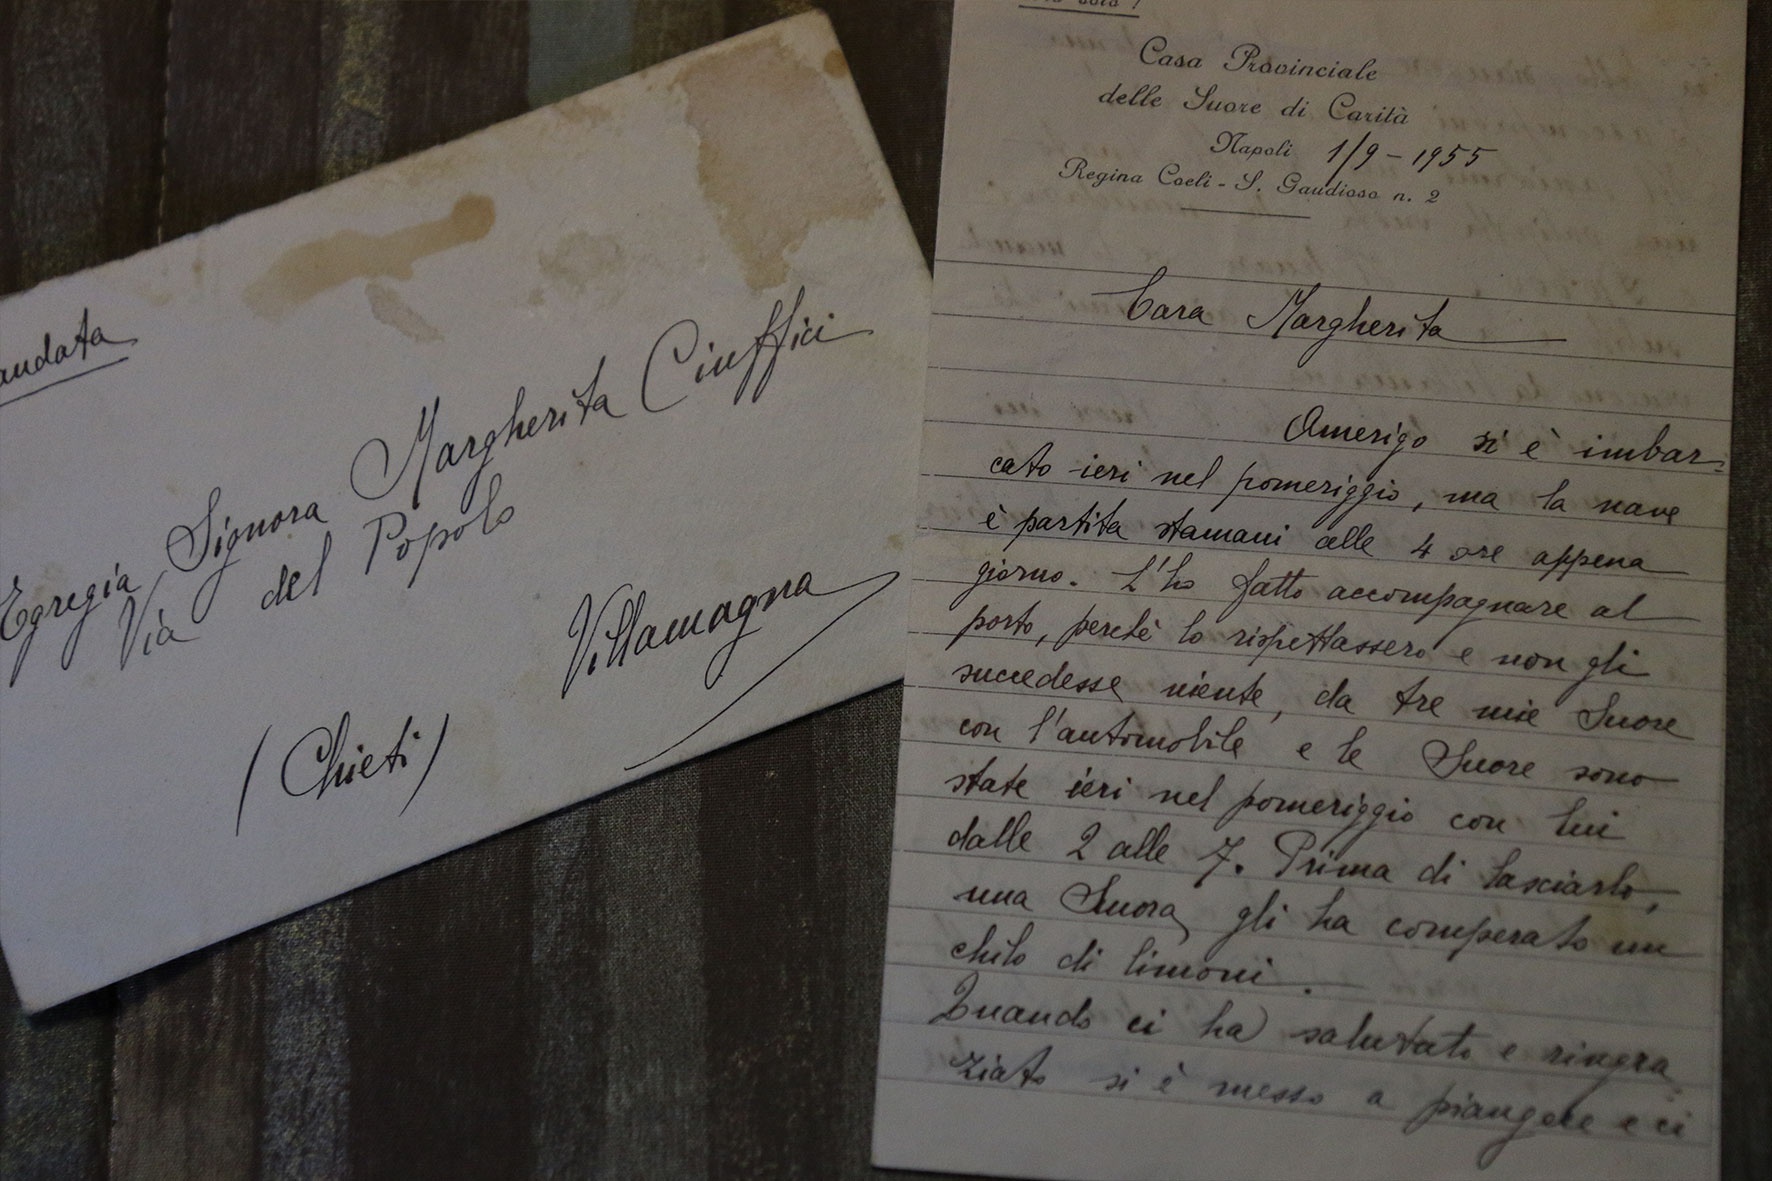 Egregia Signora Margherita Ciuffici
Via del Popolo
Villamagna
(Chieti)
Casa Provinciale
delle Suore di Carità
Napoli 1/9-1955
Regina Coeli - S. Gaudioso n. 2
Cara Margherita
Amerigo si è imbar-
cato ieri nel pomeriggio, ma la nave
è partita stamani alle 4 ore appena
giorno. L'ho fatto accompagnare al
porto, perchè lo rispettassero e non gli
succedesse niente, da tre mie Suore
con l'automobile e le Suore sono
state ieri nel pomeriggio con lui
dalle 2 alle 7. Prima di lasciarlo,
una Suora gli ha comperato un
chilo di limoni.
Quando ci ha salutato e ringra-
ziato si è messo a piangere e ci